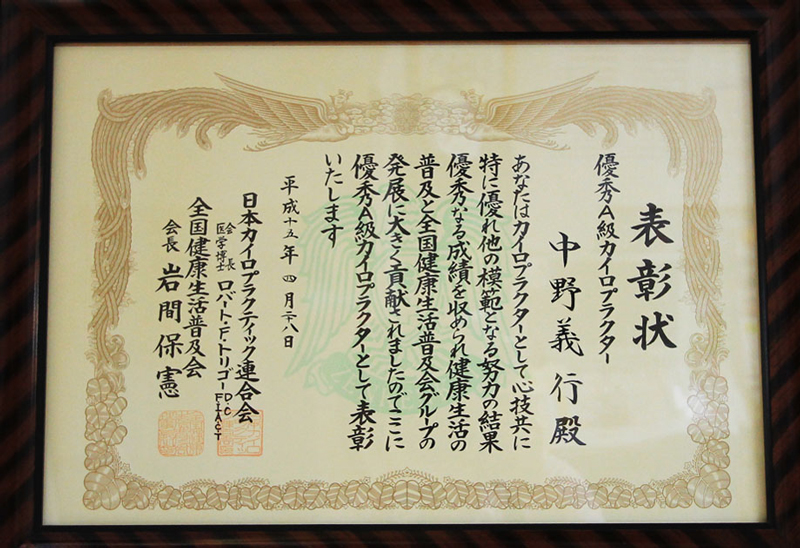 表彰状
優秀A級カイロプラクター
中野義行殿
あなたはカイロプラクターとして心技共に
特に優れ他の模範となる努力の結果
優秀なる成績を収められ健康生活の
普及と全国健康生活普及会グループの
発展に大きく貢献されましたのでここに
優秀A級カイロプラクターとして表彰
いたします
平成十五年四月二八日
日本カイロプラクティック連合会
会長
医学博士
ロバート・F・トリゴーD.C
FIACT
全国健康生活普及会
会長 岩間保憲